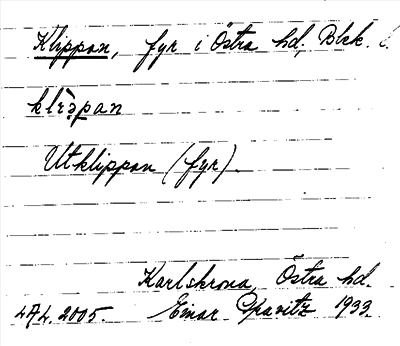 Klippan, fyr i Östra hd, Blek.
klìpan
Utklippan (fyr).
Karlskrona, Östra hd.
2005. Einar 1933.